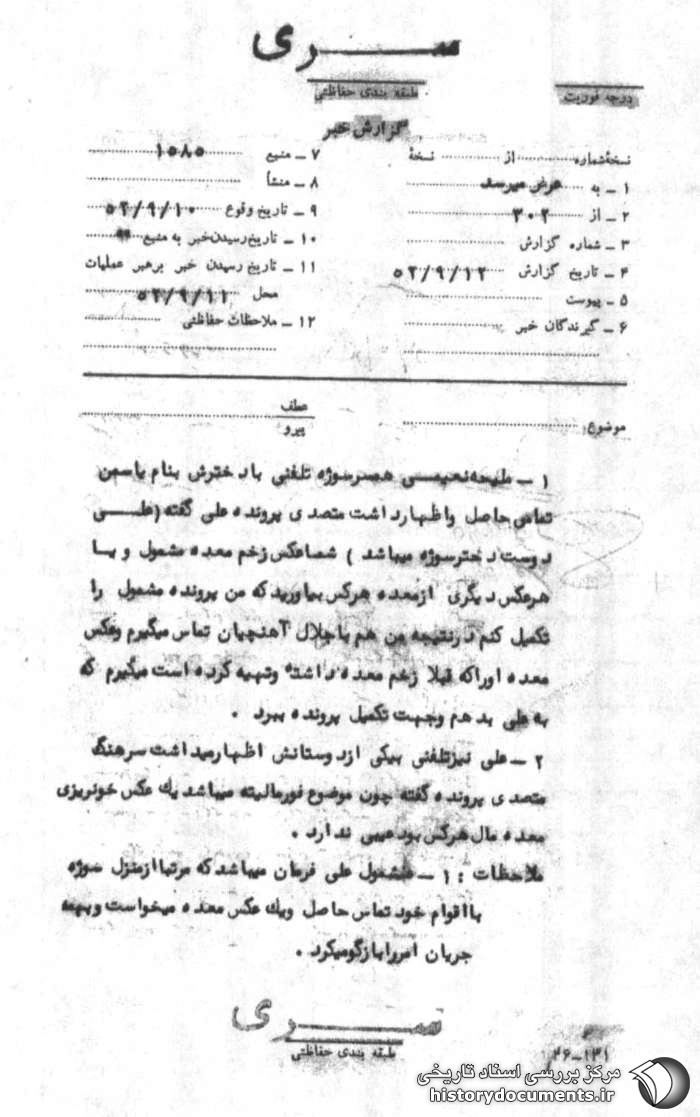 سری
طبقه بندی حفاظتی
درجه فوریت
گزارش خبر
نسخهٔ شماره از نسخهٔ
۱ ـ به عرض میرسد
۲ ـ از ۳۰۲
۳ ـ شماره گزارش
۴ ـ تاریخ گزارش ۵۲/۹/۱۲
۵ ـ پیوست
۶ ـ گیرندگان خبر
۷ ـ منبع ۱۵۸۵
۸ ـ منشأ
۹ ـ تاریخ وقوع ۵۲/۹/۱۰
۱۰ ـ تاریخ رسیدن خبر به منبع
۱۱ ـ تاریخ رسیدن خبر برهبر عملیات
محل ۵۲/۹/۱۱
۱۲ ـ ملاحظات حفاظتی
موضوع:
عطف
پیرو
۱ ـ نعیمی همسرسوژه تلفنی با دخترش بنام یاسمن
تماس حاصل واظهارداشت متصدی پرونده علی گفته (علی
دوست دخترسوژه میباشد) شماعکس زخم معده مشمول ویا
هرعکس دیگری ازمعده هرکس بیاورید که من پرونده مشمول را
تکمیل کنم درنتیجه من هم باجلال آهنچیان تماس میگیرم وعکس
معده اوراکه قبلا زخم معده داشته وتهیه کرده است میگیرم که
به علی بدهم وجهت تکمیل پرونده ببرد .
۲ ـ علی نیزتلفنی بیکی ازدوستانش اظهارمیداشت سرهنگ
متصدی پرونده گفته چون موضوع فورمالیته میباشد یك عکس خونریزی
معده مال هرکس بود عیبی ندارد .
ملاحظات : ۱ ـ مشمول علی فرمان میباشد که مرتبا ازمنزل سوژه
بااقوام خود تماس حاصل ویك عکس معده میخواست وبهمه
جریان امررابازگومیکرد .
سری
طبقه بندی حفاظتی
۲۶-۱۳۱
مرکز بررسی اسناد تاریخی
historydocuments.ir